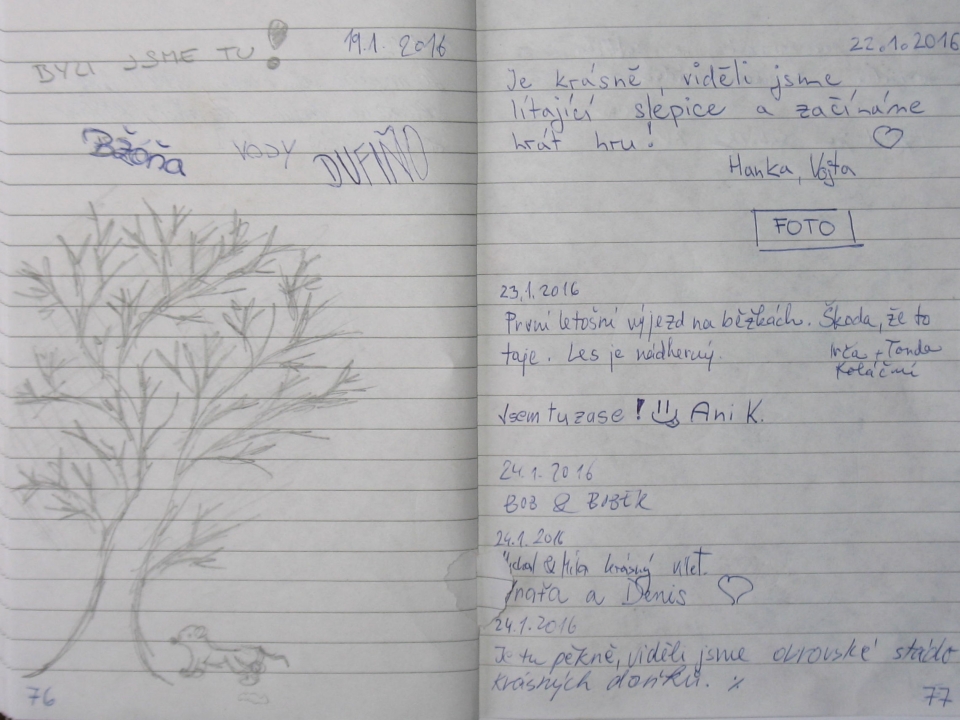 BYLI JSME TU! 19.1. 2016
Bžóňa VODY DUFIŇO
76
22.1.2016
Je krásně, viděli jsme
lítající slepice a začínáme
hrát hru!
Hanka, Vojta
FOTO
23.1.2016
První letošní výjezd na běžkách. Škoda, že to
taje. Les je nádherný.
+ Tonda
Koláční
Jsem tu zase! Ani K.
24.1.2016
BOB & BOBEK
24.1.2016
& krásný výlet.
a Denis
24.1.2016
Je tu pěkně, viděli jsme obrovské stádo
krásných daňků. x
77